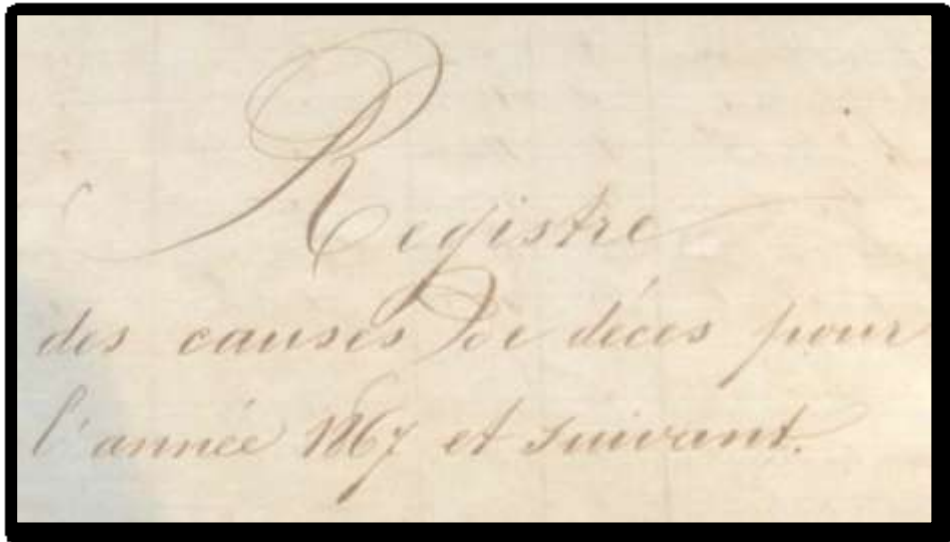 Registre
des causes de déces pour
l'année 1867 et suivant.